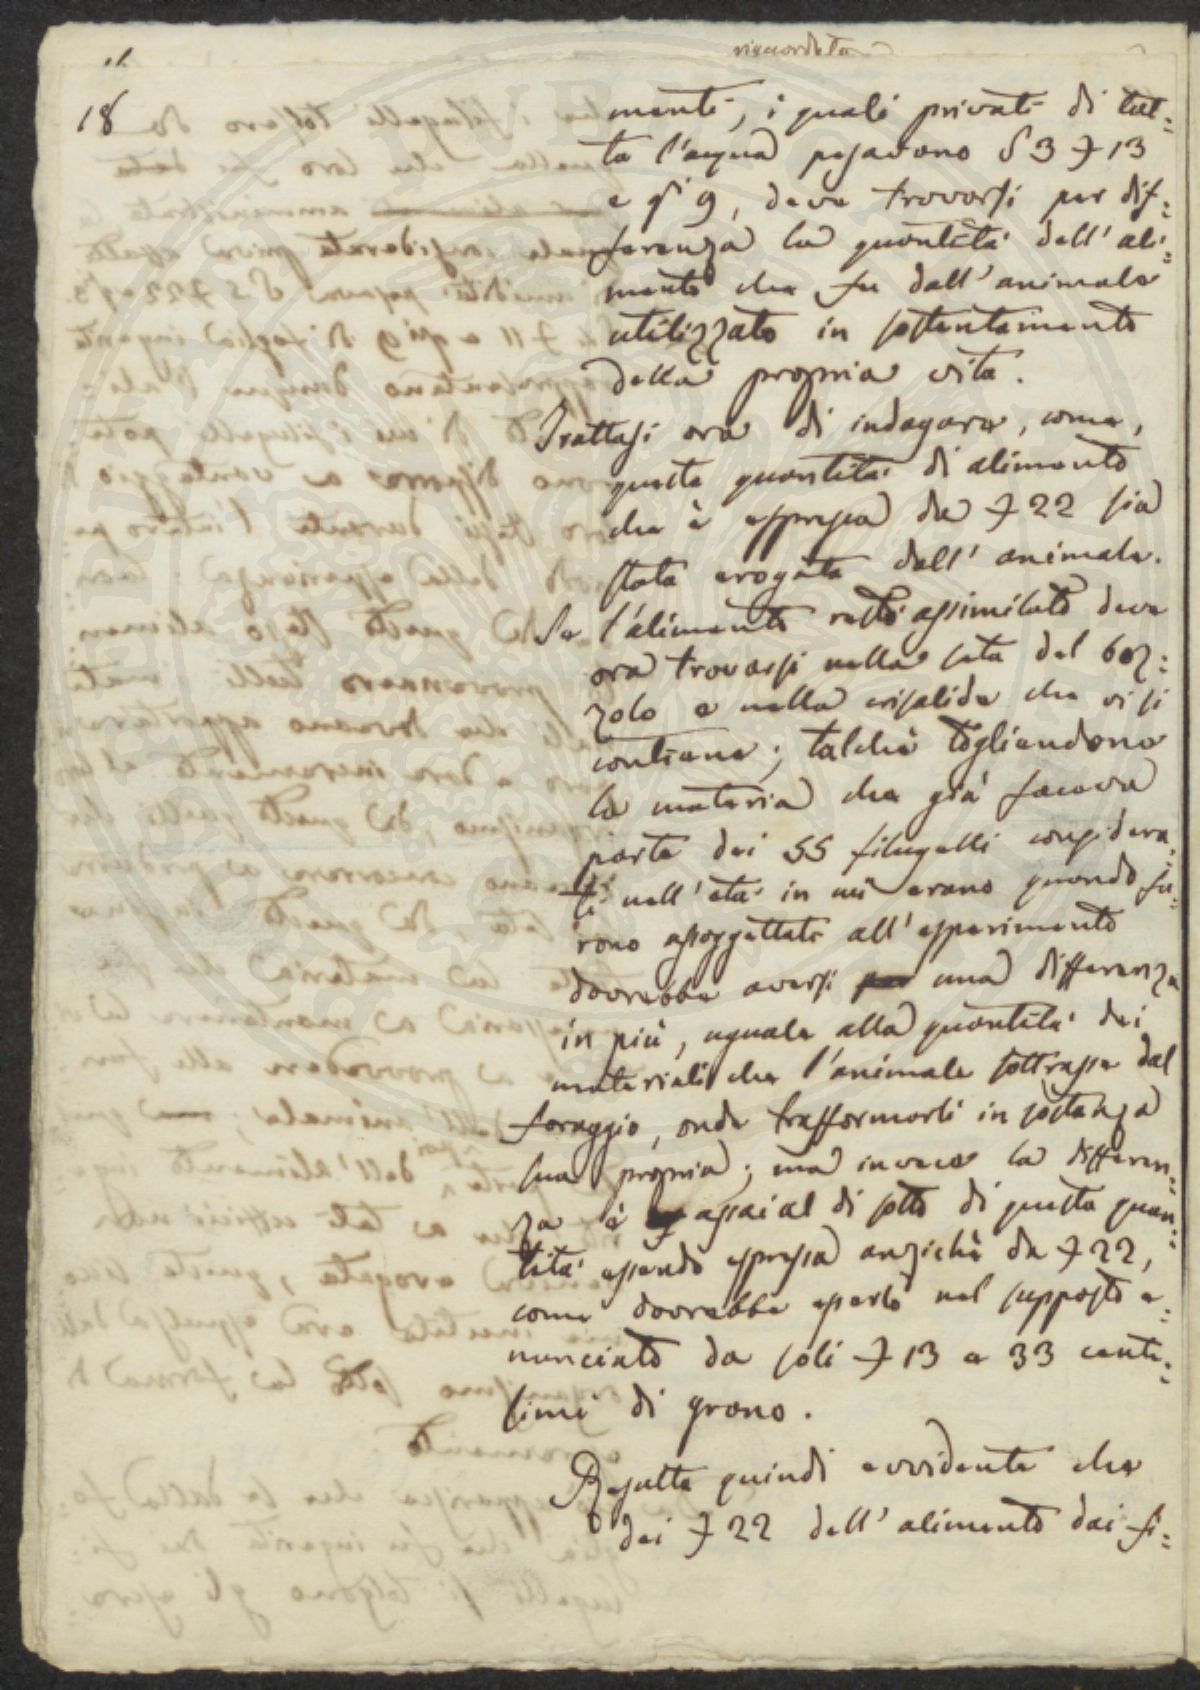 18
menti, i quali privati di tut=
ta l'acqua pesavono 3 13
e 9, deve trovarsi per dif=
ferenza la quantità dell'ali=
mento che fu dall'animale
utilizzato in sostentamento
della propria vita.
Trattasi ora di indagare, come,
questa quantità di alimento
che è espressa da 22 sia
stata erogata dall'animale.
Se l'alimento restò assimilato deve
ora trovarsi nella seta del boz=
zolo e nella crisalide che vi si
contiene; talchè togliendone
la materia che già faceva
parte dei 55 filugelli considera=
ti nell'età in cui erano quando fu=
rono assoggettati all'esperimento
dovrebbe aversi una differenza
in più, uguale alla quantità dei
materiali che l'animale sottrasse dal
foraggio, onde trasformarli in sostanza
sua propria; ma invece la differen=
za è assai al di sotto di questa quan=
tità essendo espressa anzichè da 22,
come dovrebbe esserlo nel supposto e=
nunciato da soli 13 e 33 cente=
simi di grano.
Resulta quindi evvidente che
dei 22 dell'alimento dai fi=